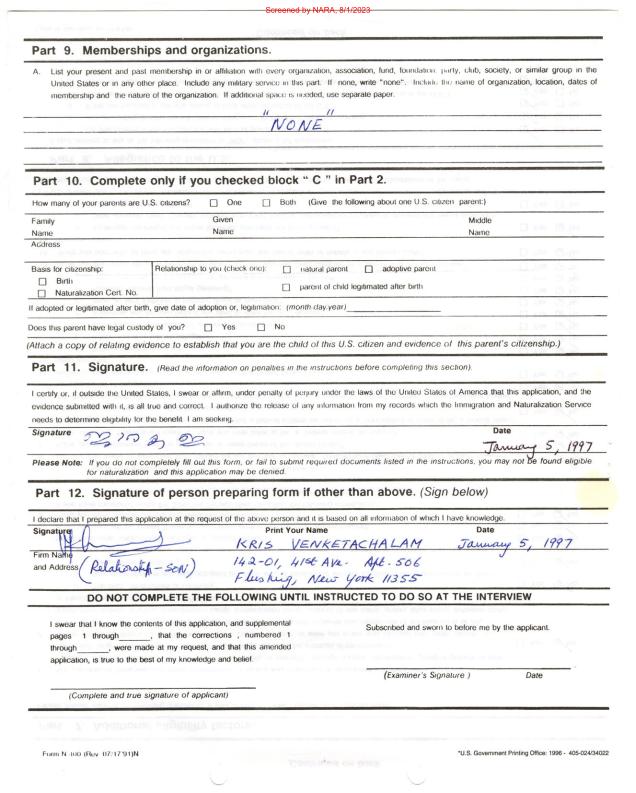 Screened by NARA, 8/1/2023
Part 9. Memberships and organizations.
A. List your present and past membership in or affiliation with every organization, association, fund, foundation, party, club, society, or similar group in the
United States or in any other place. Include any military service in this part. If none, write "none". Include the name of organization, location, dates of
membership and the nature of the organization. If additional space is needed, use separate paper.
" NONE "
Part 10. Complete only if you checked block " C " in Part 2.
How many of your parents are U.S. citizens? One Both (Give the following about one U.S. citizen parent:)
Family Given Middle
Name Name Name
Address
Basis for citizenship: Relationship to you (check one): natural parent adoptive parent
Birth
Naturalization Cert. No. parent of child legitimated after birth
If adopted or legitimated after birth, give date of adoption or, legitimation: (month day year)
Does this parent have legal custody of you? Yes No
(Attach a copy of relating evidence to establish that you are the child of this U.S. citizen and evidence of this parent's citizenship.)
Part 11. Signature. (Read the information on penalties in the instructions before completing this section).
I certify or, if outside the United States, I swear or affirm, under penalty of perjury under the laws of the United States of America that this application, and the
evidence submitted with it, is all true and correct. I authorize the release of any information from my records which the Immigration and Naturalization Service
needs to determine eligibility for the benefit I am seeking.
Signature Date
January 5, 1997
Please Note: If you do not completely fill out this form, or fail to submit required documents listed in the instructions, you may not be found eligible
for naturalization and this application may be denied.
Part 12. Signature of person preparing form if other than above. (Sign below)
I declare that I prepared this application at the request of the above person and it is based on all information of which I have knowledge.
Signature Print Your Name Date
KRIS VENKETACHALAM January 5, 1997
Firm Name
and Address (Relationship - SON) 142-01, 41st Ave. Apt. 506
Flushing, New York 11355
DO NOT COMPLETE THE FOLLOWING UNTIL INSTRUCTED TO DO SO AT THE INTERVIEW
I swear that I know the contents of this application, and supplemental
pages 1 through______, that the corrections , numbered 1
through______, were made at my request, and that this amended
application, is true to the best of my knowledge and belief.
Subscribed and sworn to before me by the applicant.
(Examiner's Signature ) Date
(Complete and true signature of applicant)
Form N 400 (Rev 07/17/91)N
*U.S. Government Printing Office: 1996 - 405-024/34022